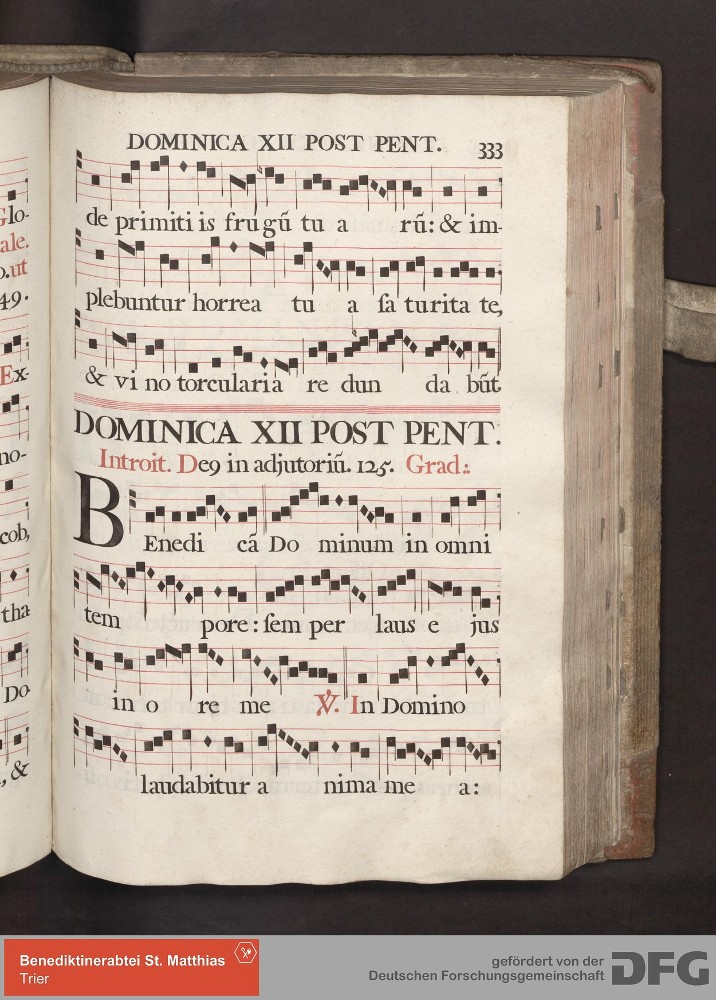 DOMINICA XII POST PENT. 333
de primiti is frugũ tu a rũ: & im-
plebuntur horrea tu a ſa turita te,
& vi no torcularia re dun da bũt
DOMINICA XII POST PENT.
Introit. De9 in adjutoriũ. 125. Grad.:
BEnedi cã Do minum in omni
tem pore: ſem per laus e jus
in o re me ℣. In Domino
laudabitur a nima me a:
Glo-
ale.
o. ut
49.
Ex-
no-
cob,
tha-
Do-
, &
Benediktinerabtei St. Matthias
Trier
gefördert von der
Deutschen Forschungsgemeinschaft DFG